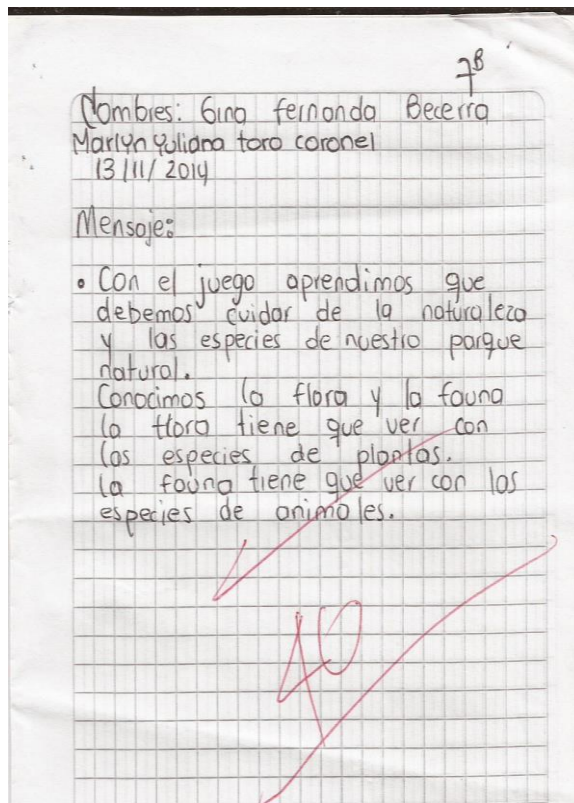 7B
Nombres: Gina fernanda Becerra
Marlyn yuliana toro coronel
13/11/2014
Mensaje:
• Con el juego aprendimos que
debemos cuidar de la naturaleza
y las especies de nuestro parque
natural.
Conocimos la flora y la fauna
la flora tiene que ver con
las especies de plantas.
la fauna tiene que ver con las
especies de animales.
40